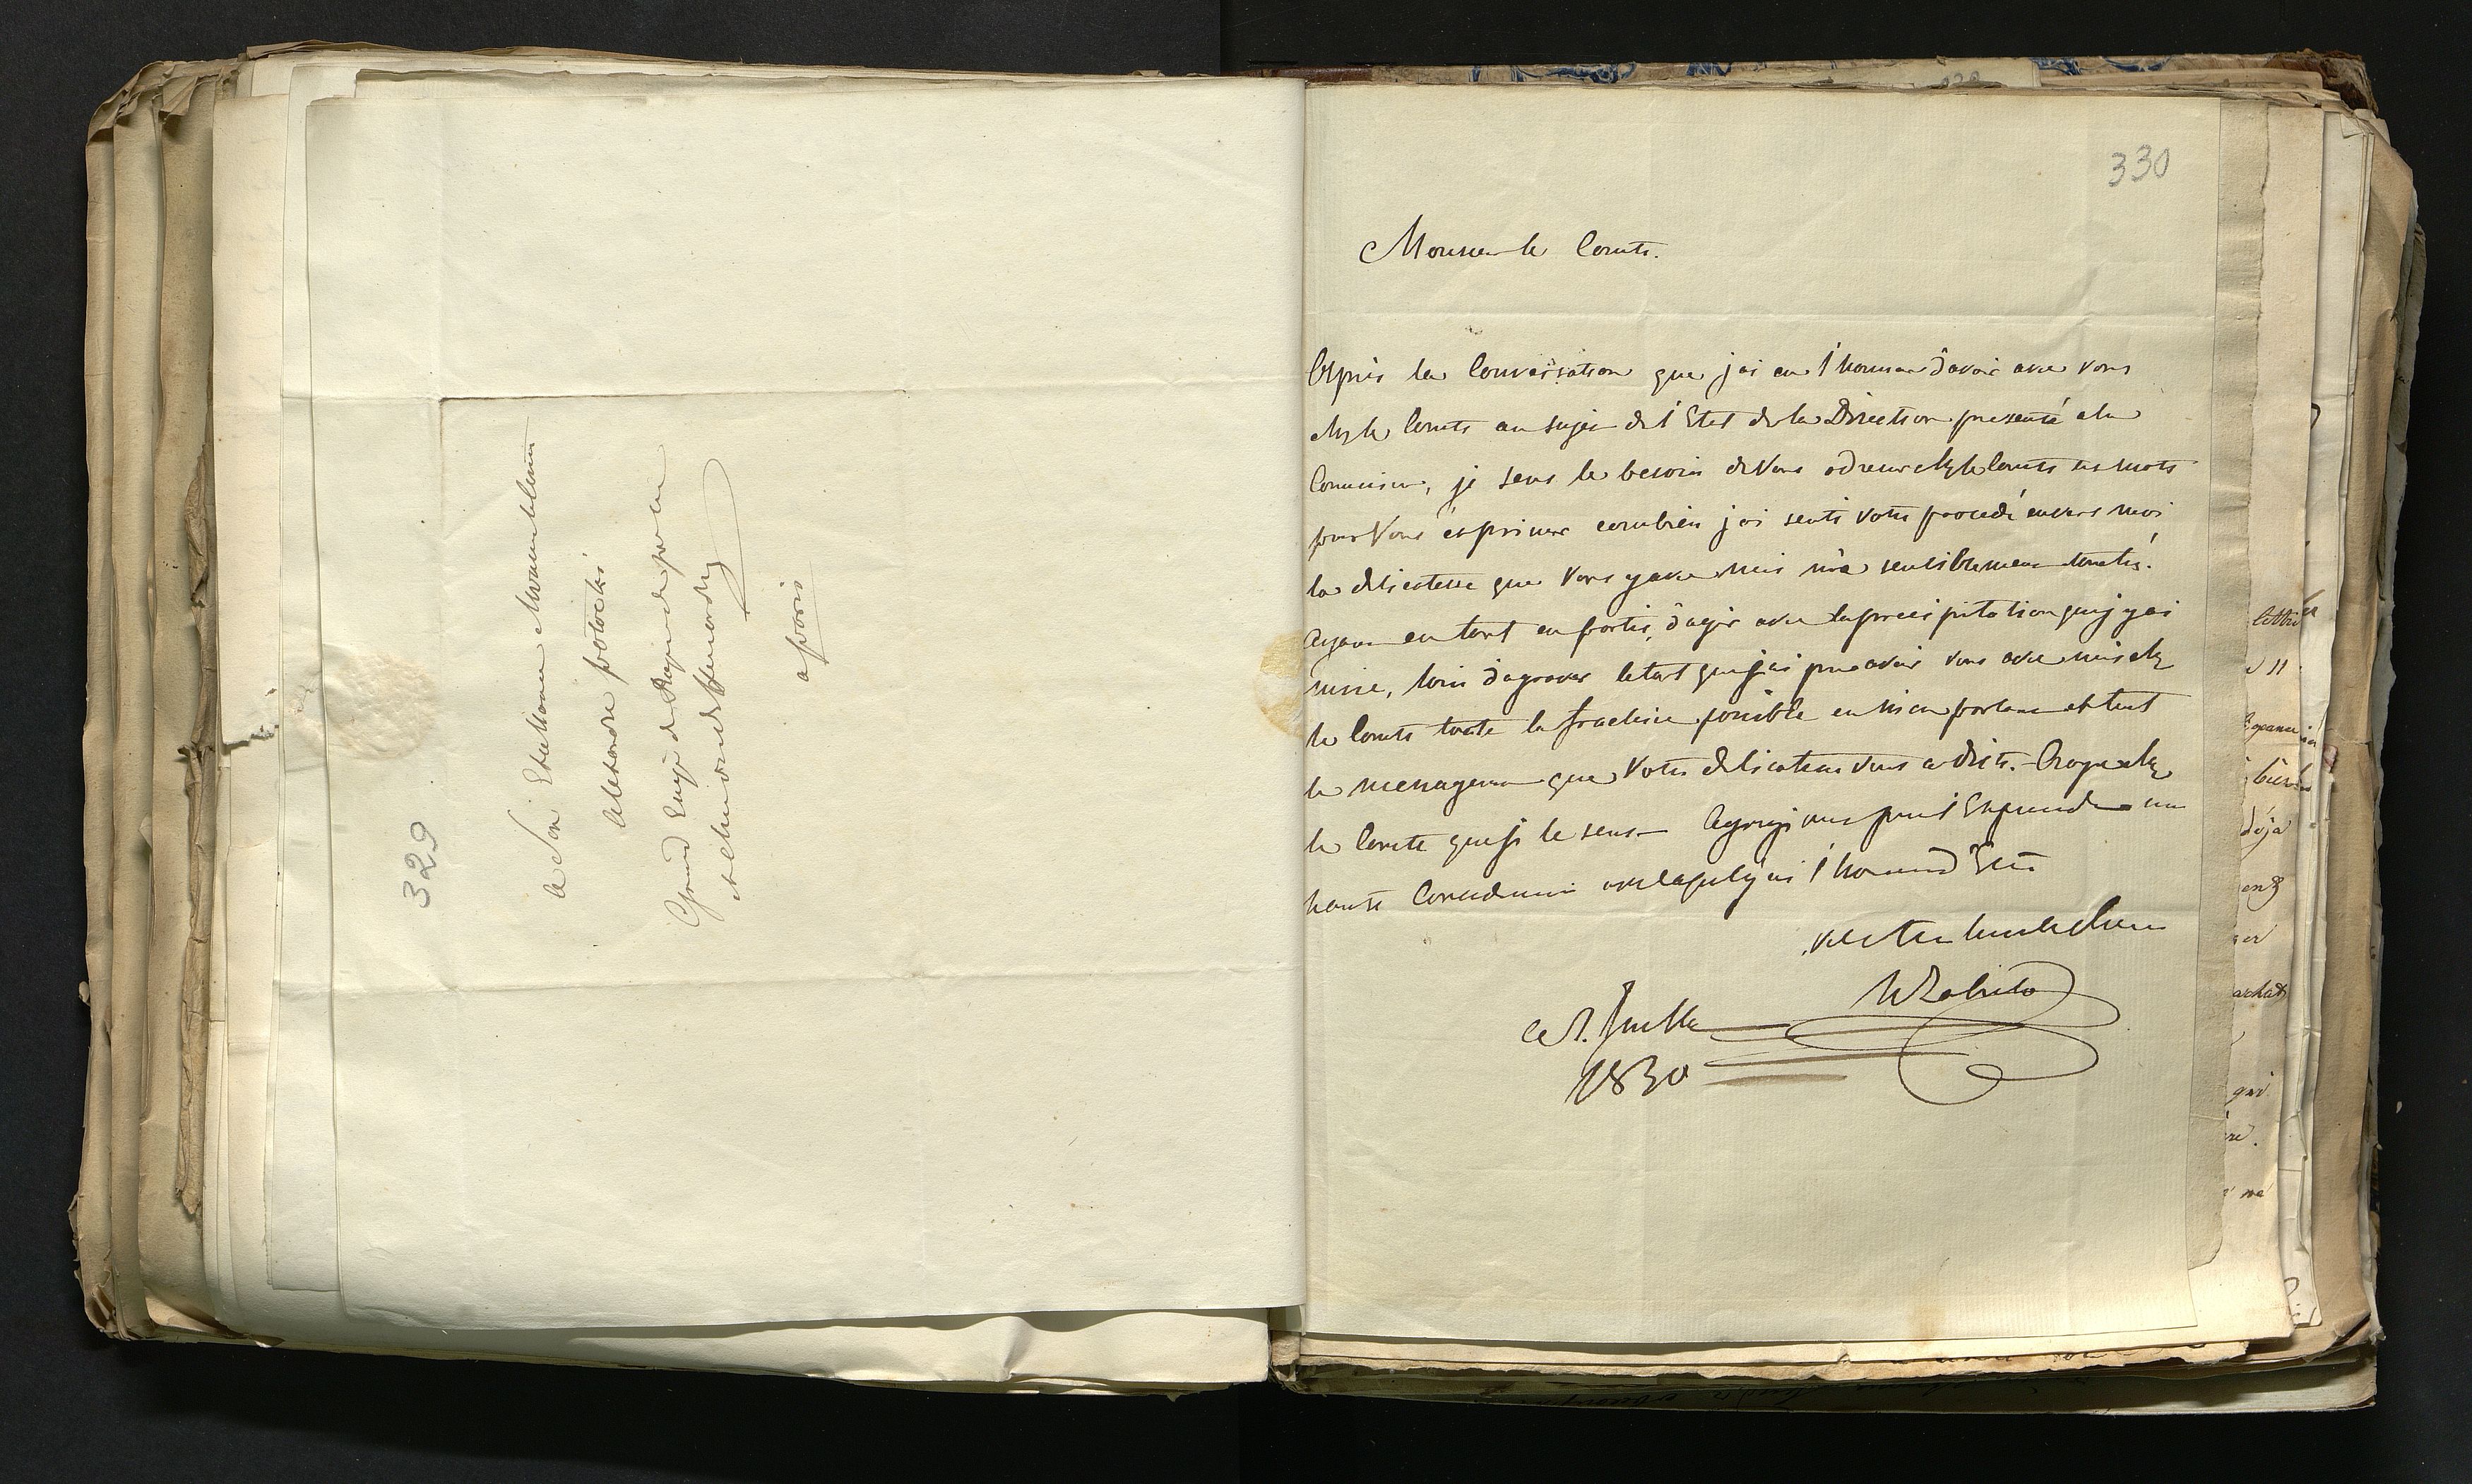 329
a Son Excellence Monsieur le Comte
Alexandre potocki
Grand Ecuyer du Royaume de pologne
a paris
330
Monsieur le Comte.
Après la Conversation que jai eu l'honneur d'avoir avec vous
Mr le Comte au sujet de l'Etat de la Direction presenté a la
Commission, je sens le besoin de Vous adresser Mr le Comte ces mots
pour Vous éxprimer combien jai senti votre procedé envers moi
la delicatesse que Vous y avez mis m'a sensiblement touché.
Ayant eu tort en partie, d'agir avec la precipitation que j'y ai
mise, loin d'agraver le tort que jai pu avoir vous avez mis Mr
le Comte toute la franchise possible en m'en parlant et tout
le menagement que Votre delicatesse vous a dicté. Croyez Mr
le Comte que je le sens Agréez l'expression de ma
haute Consideration avec laquelle j'ai l'honneur d'Etre
votre tres humble
ce 1. Juillet
1830